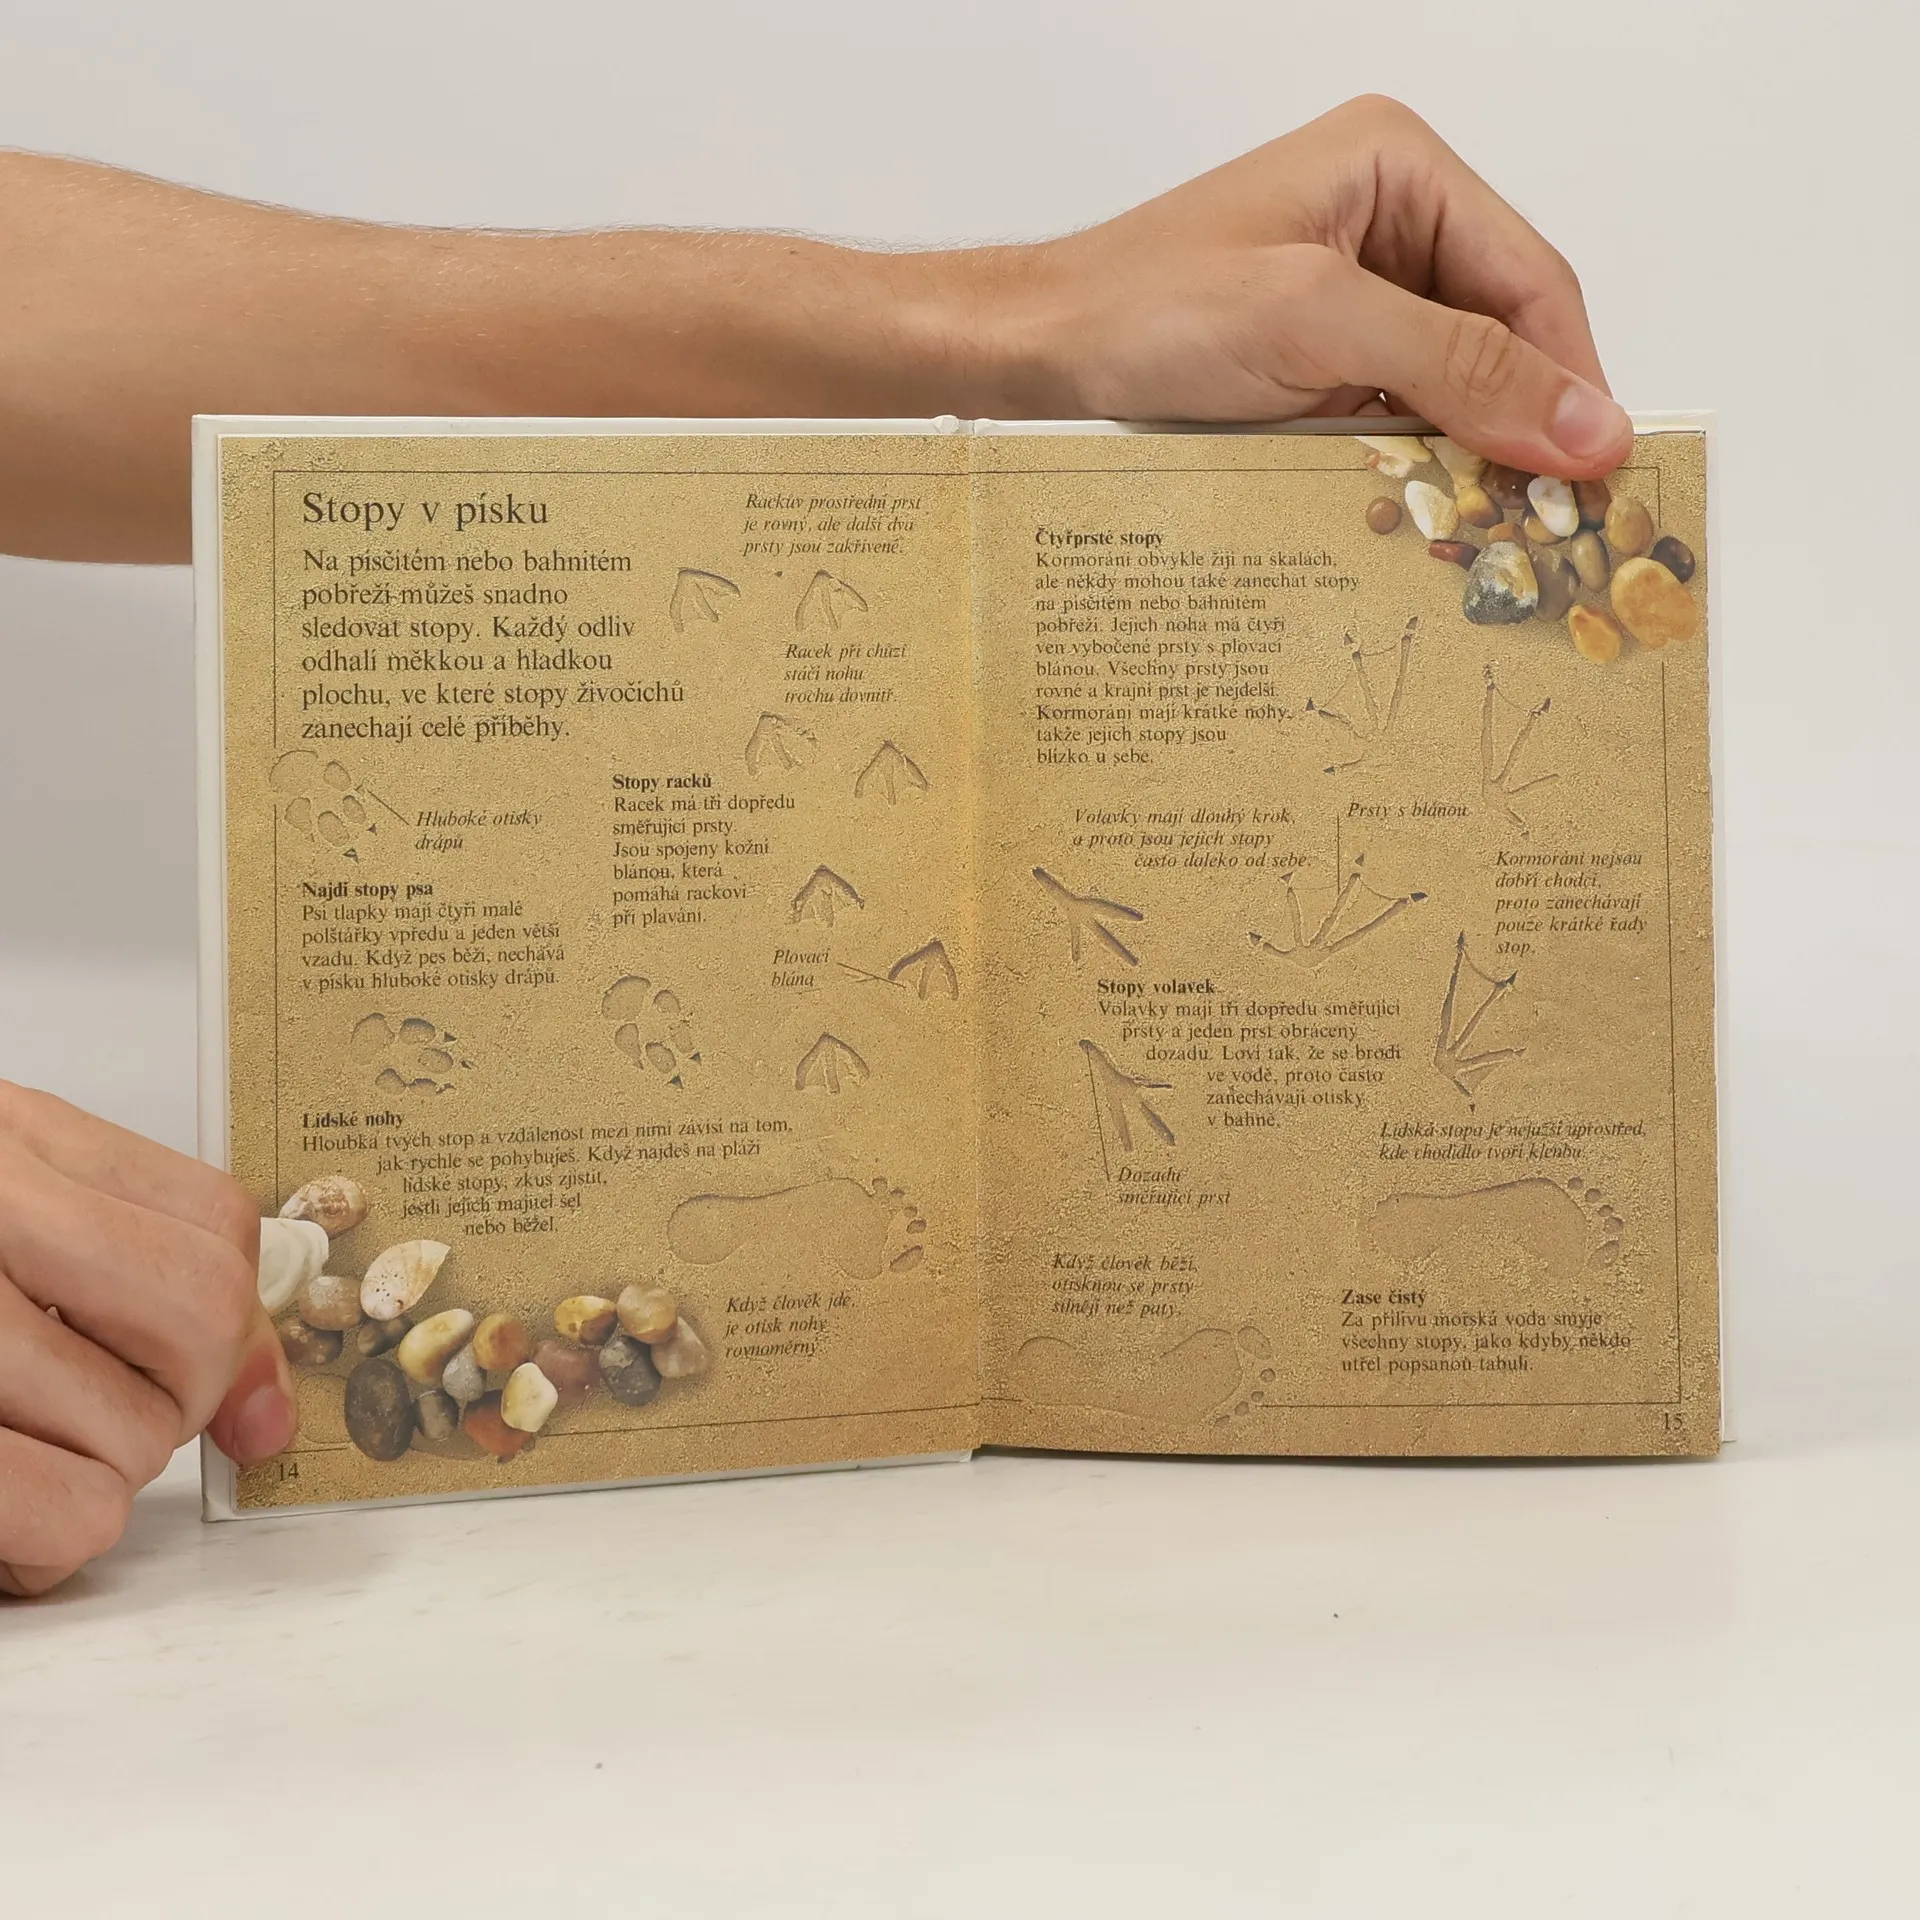 Stopy v písku
Na písčitém nebo bahnitém
pobřeží můžeš snadno
sledovat stopy. Každý odliv
odhalí měkkou a hladkou
plochu, ve které stopy živočichů
zanechají celé příběhy.
Rackův prostřední prst
je rovný, ale další dva
prsty jsou zakřivené.
Racek při chůzi
stáčí nohu
trochu dovnitř.
Hluboké otisky
drápů
Najdi stopy psa
Psí tlapky mají čtyři malé
polštářky vpředu a jeden větší
vzadu. Když pes běží, nechává
v písku hluboké otisky drápů.
Stopy racků
Racek má tři dopředu
směřující prsty.
Jsou spojeny kožní
blánou, která
pomáhá rackovi
při plavání.
Plovací
blána
Lidské nohy
Hloubka tvých stop a vzdálenost mezi nimi závisí na tom,
jak rychle se pohybuješ. Když najdeš na pláži
lidské stopy, zkus zjistit,
jestli jejich majitel šel
nebo běžel.
Když člověk jde,
je otisk nohy
rovnoměrný.
14
Čtyřprsté stopy
Kormoráni obvykle žijí na skalách,
ale někdy mohou také zanechat stopy
na písčitém nebo bahnitém
pobřeží. Jejich noha má čtyři
ven vybočené prsty s plovací
blánou. Všechny prsty jsou
rovné a krajní prst je nejdelší.
Kormoráni mají krátké nohy,
takže jejich stopy jsou
blízko u sebe.
Volavky mají dlouhý krok,
a proto jsou jejich stopy
často daleko od sebe.
Prsty s blánou
Kormoráni nejsou
dobří chodci,
proto zanechávají
pouze krátké řady
stop.
Stopy volavek
Volavky mají tři dopředu směřující
prsty a jeden prst obrácený
dozadu. Loví tak, že se brodí
ve vodě, proto často
zanechávají otisky
v bahně.
Dozadu
směřující prst
Lidská stopa je nejužší uprostřed,
kde chodidlo tvoří klenbu.
Když člověk běží,
otisknou se prsty
silněji než paty.
Zase čistý
Za přílivu mořská voda smyje
všechny stopy, jako kdyby někdo
utřel popsanou tabuli.
15